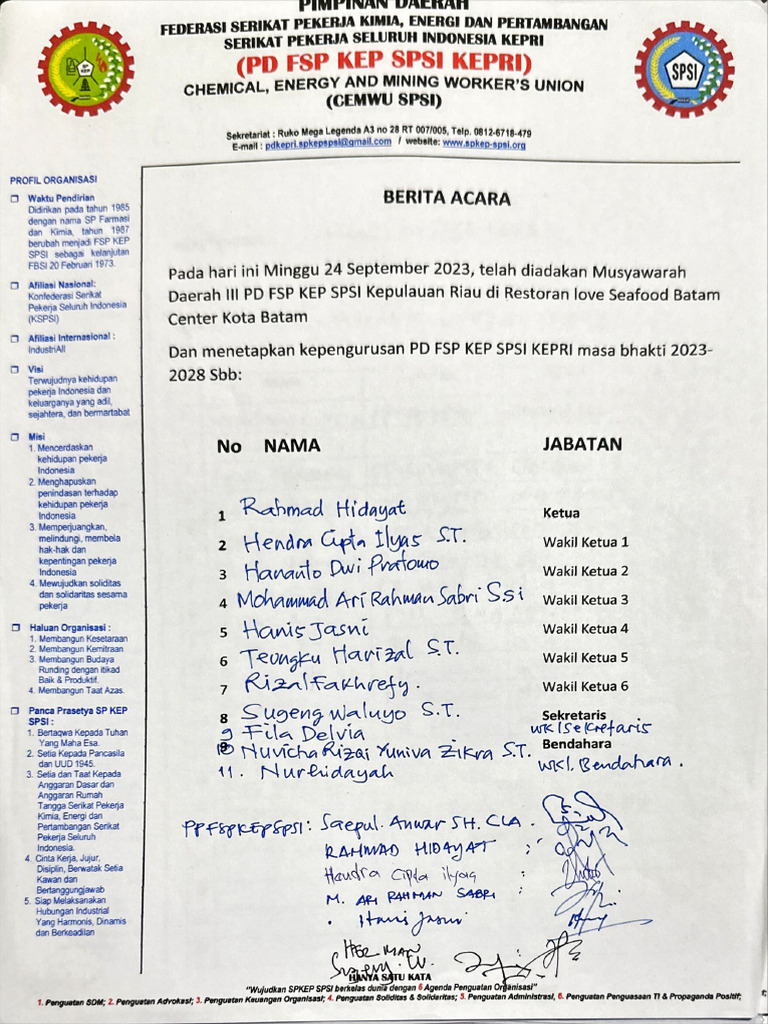 PIMPINAN DAERAH
FEDERASI SERIKAT PEKERJA KIMIA, ENERGI DAN PERTAMBANGAN
SERIKAT PEKERJA SELURUH INDONESIA KEPRI
(PD FSP KEP SPSI KEPRI)
CHEMICAL, ENERGY AND MINING WORKER'S UNION
(CEMWU SPSI)
SP KEP
SPSI
Sekretariat : Ruko Mega Legenda A3 no 28 RT 007/005, Telp. 0812-6718-479
E-mail : pdkepri.spkepspsi@gmail.com / website: www.spkep-spsi.org
PROFIL ORGANISASI
Waktu Pendirian
Didirikan pada tahun 1985
dengan nama SP Farmasi
dan Kimia, tahun 1987
berubah menjadi FSP KEP
SPSI sebagai kelanjutan
FBSI 20 Februari 1973.
Afiliasi Nasional:
Konfederasi Serikat
Pekerja Seluruh Indonesia
(KSPSI)
Afiliasi Internasional :
IndustriAll
Visi
Terwujudnya kehidupan
pekerja Indonesia dan
keluarganya yang adil,
sejahtera, dan bermartabat
Misi
1. Mencerdaskan
kehidupan pekerja
Indonesia
2. Menghapuskan
penindasan terhadap
kehidupan pekerja
Indonesia
3. Memperjuangkan,
melindungi, membela
hak-hak dan
kepentingan pekerja
Indonesia
4. Mewujudkan soliditas
dan solidaritas sesama
pekerja
Haluan Organisasi :
1. Membangun Kesetaraan
2. Membangun Kemitraan
3. Membangun Budaya
Runding dengan itikad
Baik & Produktif.
4. Membangun Taat Azas.
Panca Prasetya SP KEP
SPSI :
1. Bertaqwa Kepada Tuhan
Yang Maha Esa.
2. Setia Kepada Pancasila
dan UUD 1945.
3. Setia dan Taat Kepada
Anggaran Dasar dan
Anggaran Rumah
Tangga Serikat Pekerja
Kimia, Energi dan
Pertambangan Serikat
Pekerja Seluruh
Indonesia.
4. Cinta Kerja, Jujur,
Disiplin, Berwatak Setia
Kawan dan
Bertanggungjawab
5. Siap Melaksanakan
Hubungan Industrial
Yang Harmonis, Dinamis
dan Berkeadilan
BERITA ACARA
Pada hari ini Minggu 24 September 2023, telah diadakan Musyawarah
Daerah III PD FSP KEP SPSI Kepulauan Riau di Restoran love Seafood Batam
Center Kota Batam
Dan menetapkan kepengurusan PD FSP KEP SPSI KEPRI masa bhakti 2023-
2028 Sbb:
No NAMA JABATAN
1 Rahmad Hidayat Ketua
2 Hendra Cipta Ilyas S.T. Wakil Ketua 1
3 Hananto Dwi Pratomo Wakil Ketua 2
4 Mohammad Ari Rahman Sabri Ssi Wakil Ketua 3
5 Hanis Jasni Wakil Ketua 4
6 Teungku Harizal S.T. Wakil Ketua 5
7 Rizal Fakhrefy. Wakil Ketua 6
8 Sugeng Waluyo S.T. Sekretaris
9 Fila Delvia wkl sekretaris
10 Nuvicha Rizqi Yuniva Zikra S.T. Bendahara
11. Nurhidayah wkl. Bendahara.
PPFSPKEPSPSI: Saepul. Anwar SH. CLA.
RAHMAD HIDAYAT :
Hendra Cipta ilyas :
M. ARI RAHMAN SABRI :
Hanis Jasni
HERMAN
Sugeng. W.
HANYA SATU KATA
"Wujudkan SPKEP SPSI berkelas dunia dengan 6 Agenda Penguatan Organisasi"
1. Penguatan SDM; 2. Penguatan Advokasi; 3. Penguatan Keuangan Organisasi; 4. Penguatan Soliditas & Solidaritas; 5. Penguatan Administrasi, 6. Penguatan Penguasaan TI & Propaganda Positif;